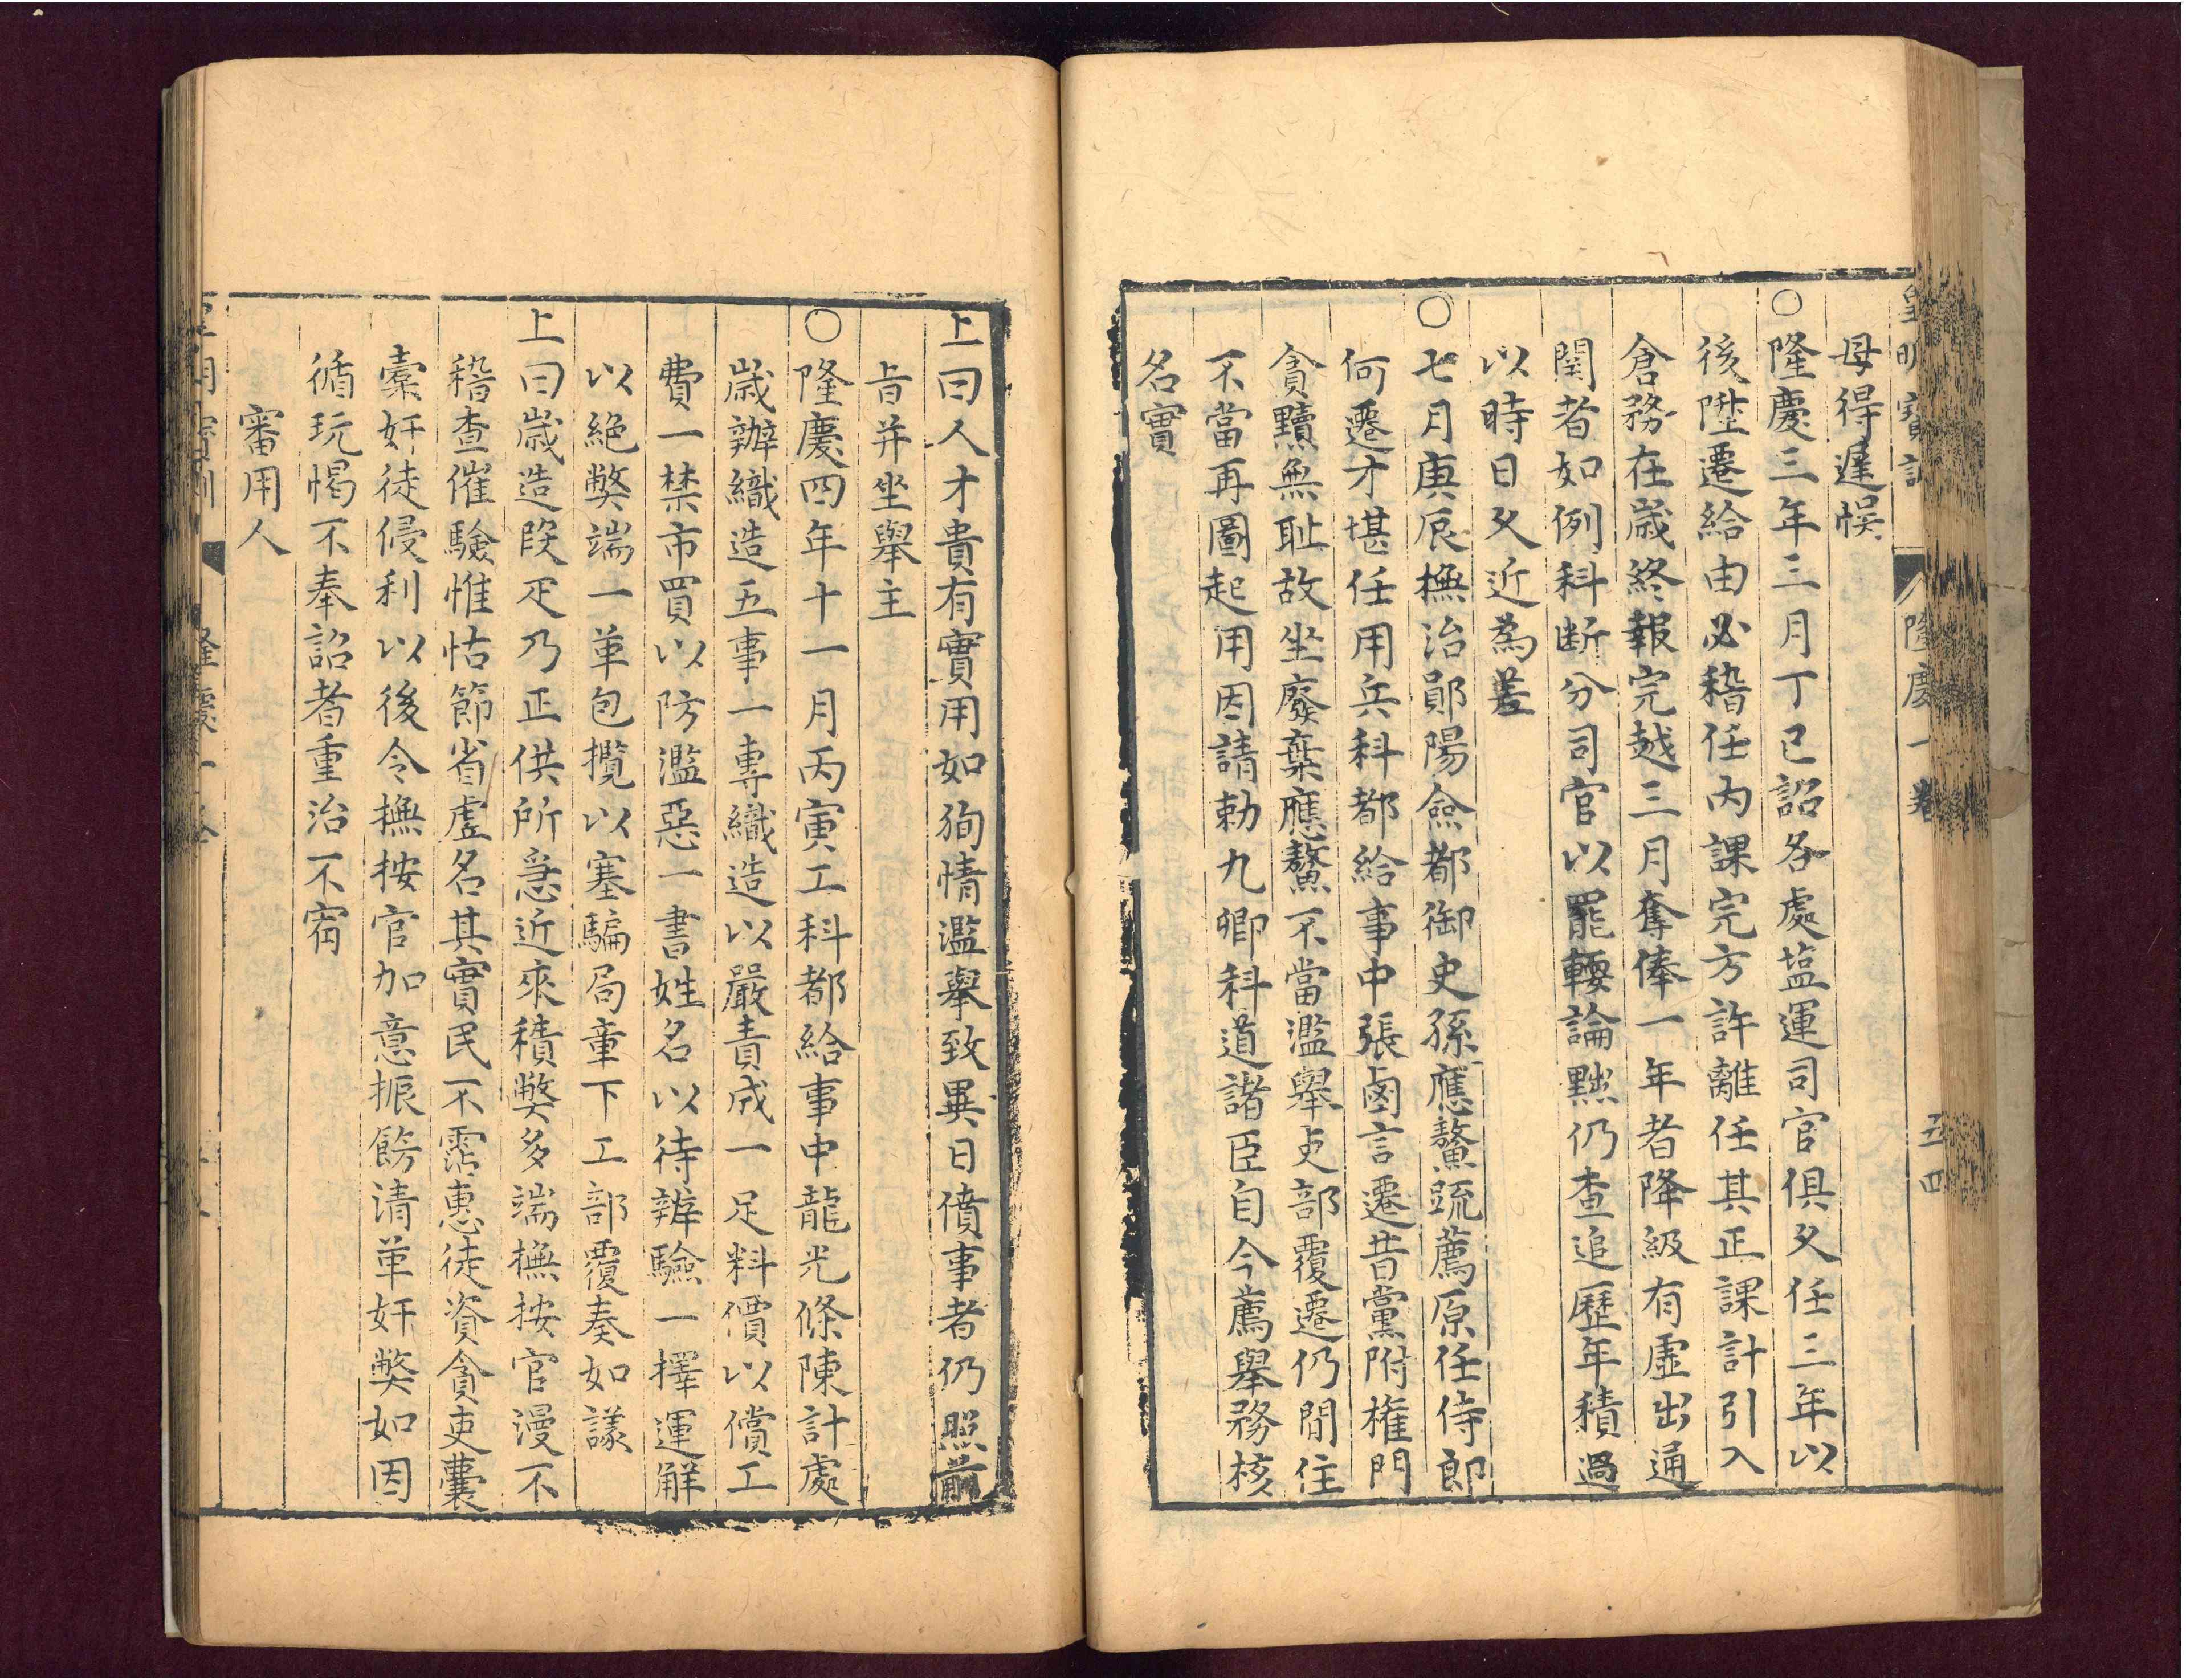 皇明寶訓 隆慶一卷 五四
毋得遲悞
○隆慶三年三月丁巳詔各處塩運司官俱久任三年以
後陞遷給由必稽任內課完方許離任其正課計引入
倉務在歲終報完越三月奪俸一年者降級有虛出通
関者如例科断分司官以罷輭論黜仍查追歷年積過
以時日久近為差
○七月庚辰撫治鄖陽僉都御史孫應鰲疏薦原任侍郎
何遷才堪任用兵科都給事中張鹵言遷昔黨附權門
貪黷無耻故坐廢棄應鰲不當濫舉吏部覆遷仍閒住
不當再圖起用因請勅九卿科道諸臣自今薦舉務核
名實
上曰人才貴有實用如狥情濫舉致異日僨事者仍照前
旨并坐舉主
○隆慶四年十一月丙寅工科都給事中龍光條陳計處
歲辦織造五事一專織造以嚴責成一足料價以償工
費一禁市買以防濫惡一書姓名以待辨驗一擇運解
以絕弊端一革包攬以塞騙局章下工部覆奏如議
上曰歲造段疋乃正供所急近來積弊多端撫按官漫不
稽查催驗惟怙節省虛名其實民不霑惠徒資貪吏囊
橐奸徒侵利以後令撫按官加意振飭清革奸弊如因
循玩愒不奉詔者重治不宥
審用人
隆慶一卷